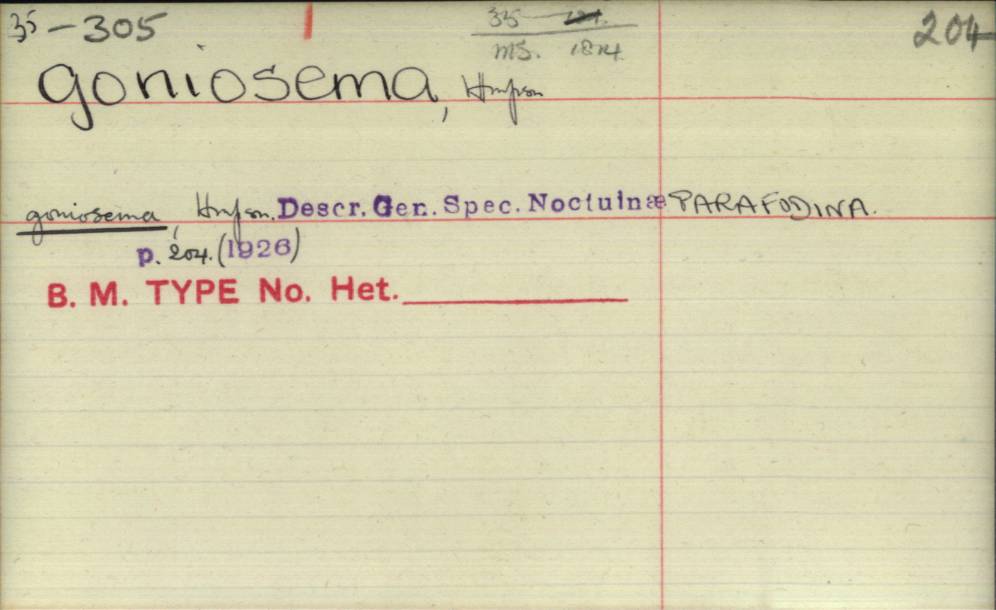 35-305 33 204
MS. 1814.
goniosema, Hmpson
goniosema, Hmpson. Descr. Gen. Spec. Noctuinæ PARAFODINA.
p. 204. (1926)
B. M. TYPE No. Het.